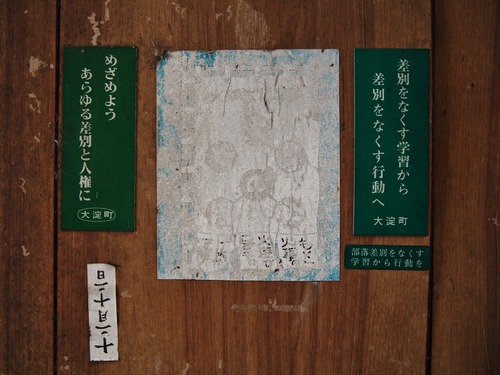 差別をなくす学習から
差別をなくす行動へ
大淀町
部落差別をなくす
学習から行動を
めざめよう
あらゆる差別と人権に
大淀町
十二月十二日